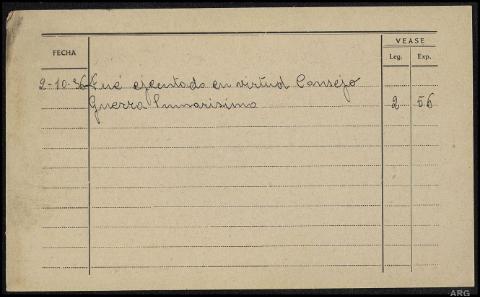 VEASE
FECHA Leg. Exp.
2-10-36 Fué ejecutado en virtud Consejo
Guerra Sumarisimo 2 56
ARG